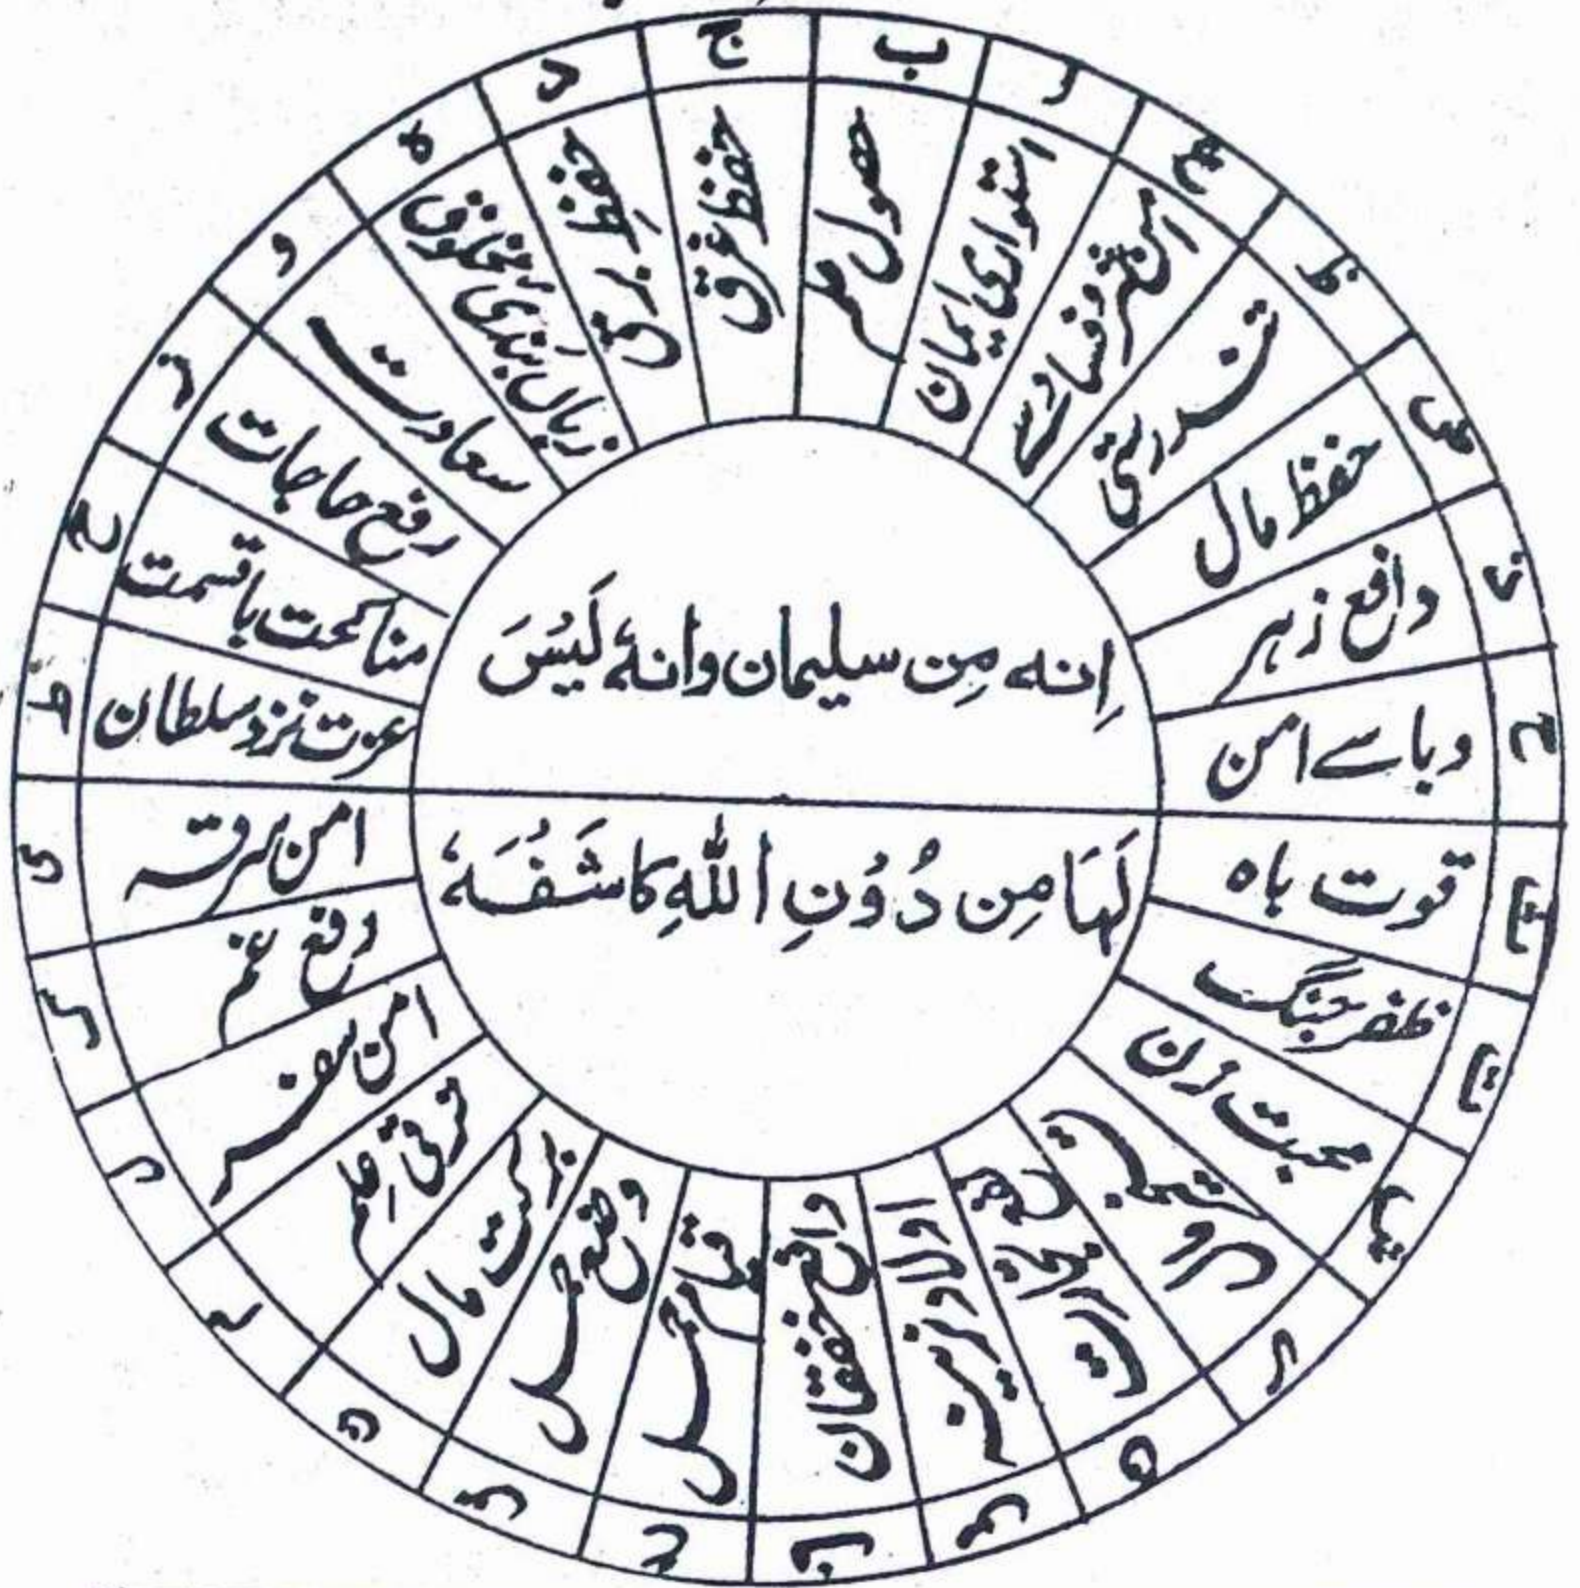 اِنه مِن سلیمان وانهٗ لَیْسَ
لَهَا مِن دُوْنِ اللّٰهِ کاشَفُسَهٗ
ا
استواری ایمان
ب
حصول
ج
حفظ غرق
د
حفظ حرق
ہ
زبان بندی مخلوق
و
سعادت
ز
رفع حاجات
ح
مناکحت باقسمت
ط
عزت نزد سلطان
ی
امن سرقہ
ک
دفع غم
ل
امن سفر
م
ترقی علم
ن
برکت مال
س
وضع حمل
ع
قیام حمل
ف
دافع خفقان
ص
اولاد نرینہ
ق
ر
ش
محبت زن
ت
ظفر جنگ
ث
قوت باہ
خ
وبا سے امن
ذ
دافع زہر
ض
حفظ مال
ظ
تندرستی
غ
امن شر و فساد سے